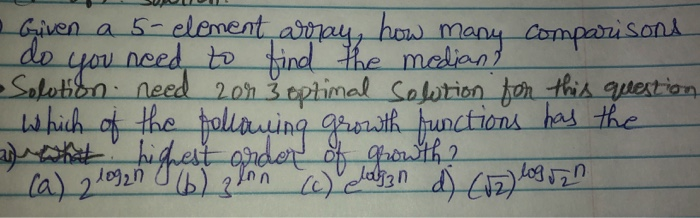 Given a 5-element array, how many comparisons
do you need to find the median?
Solution. need 2 or 3 optimal Solution for this question
Which of the following growth functions has the
highest order of growth?
(a) 2^log2n (b) 3^ln n (c) e^log3n d) (√2)^log√2 n